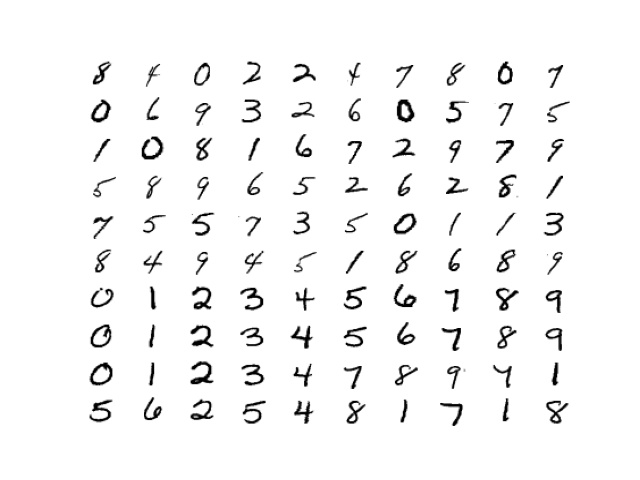 8 4 0 2 2 4 7 8 0 7
0 6 9 3 2 6 0 5 7 5
1 0 8 1 6 7 2 9 7 9
5 8 9 6 5 2 6 2 8 1
7 5 5 7 3 5 0 1 1 3
8 4 9 4 5 1 8 6 8 9
0 1 2 3 4 5 6 7 8 9
0 1 2 3 4 5 6 7 8 9
0 1 2 3 4 7 8 9 4 1
5 6 2 5 4 8 1 7 1 8